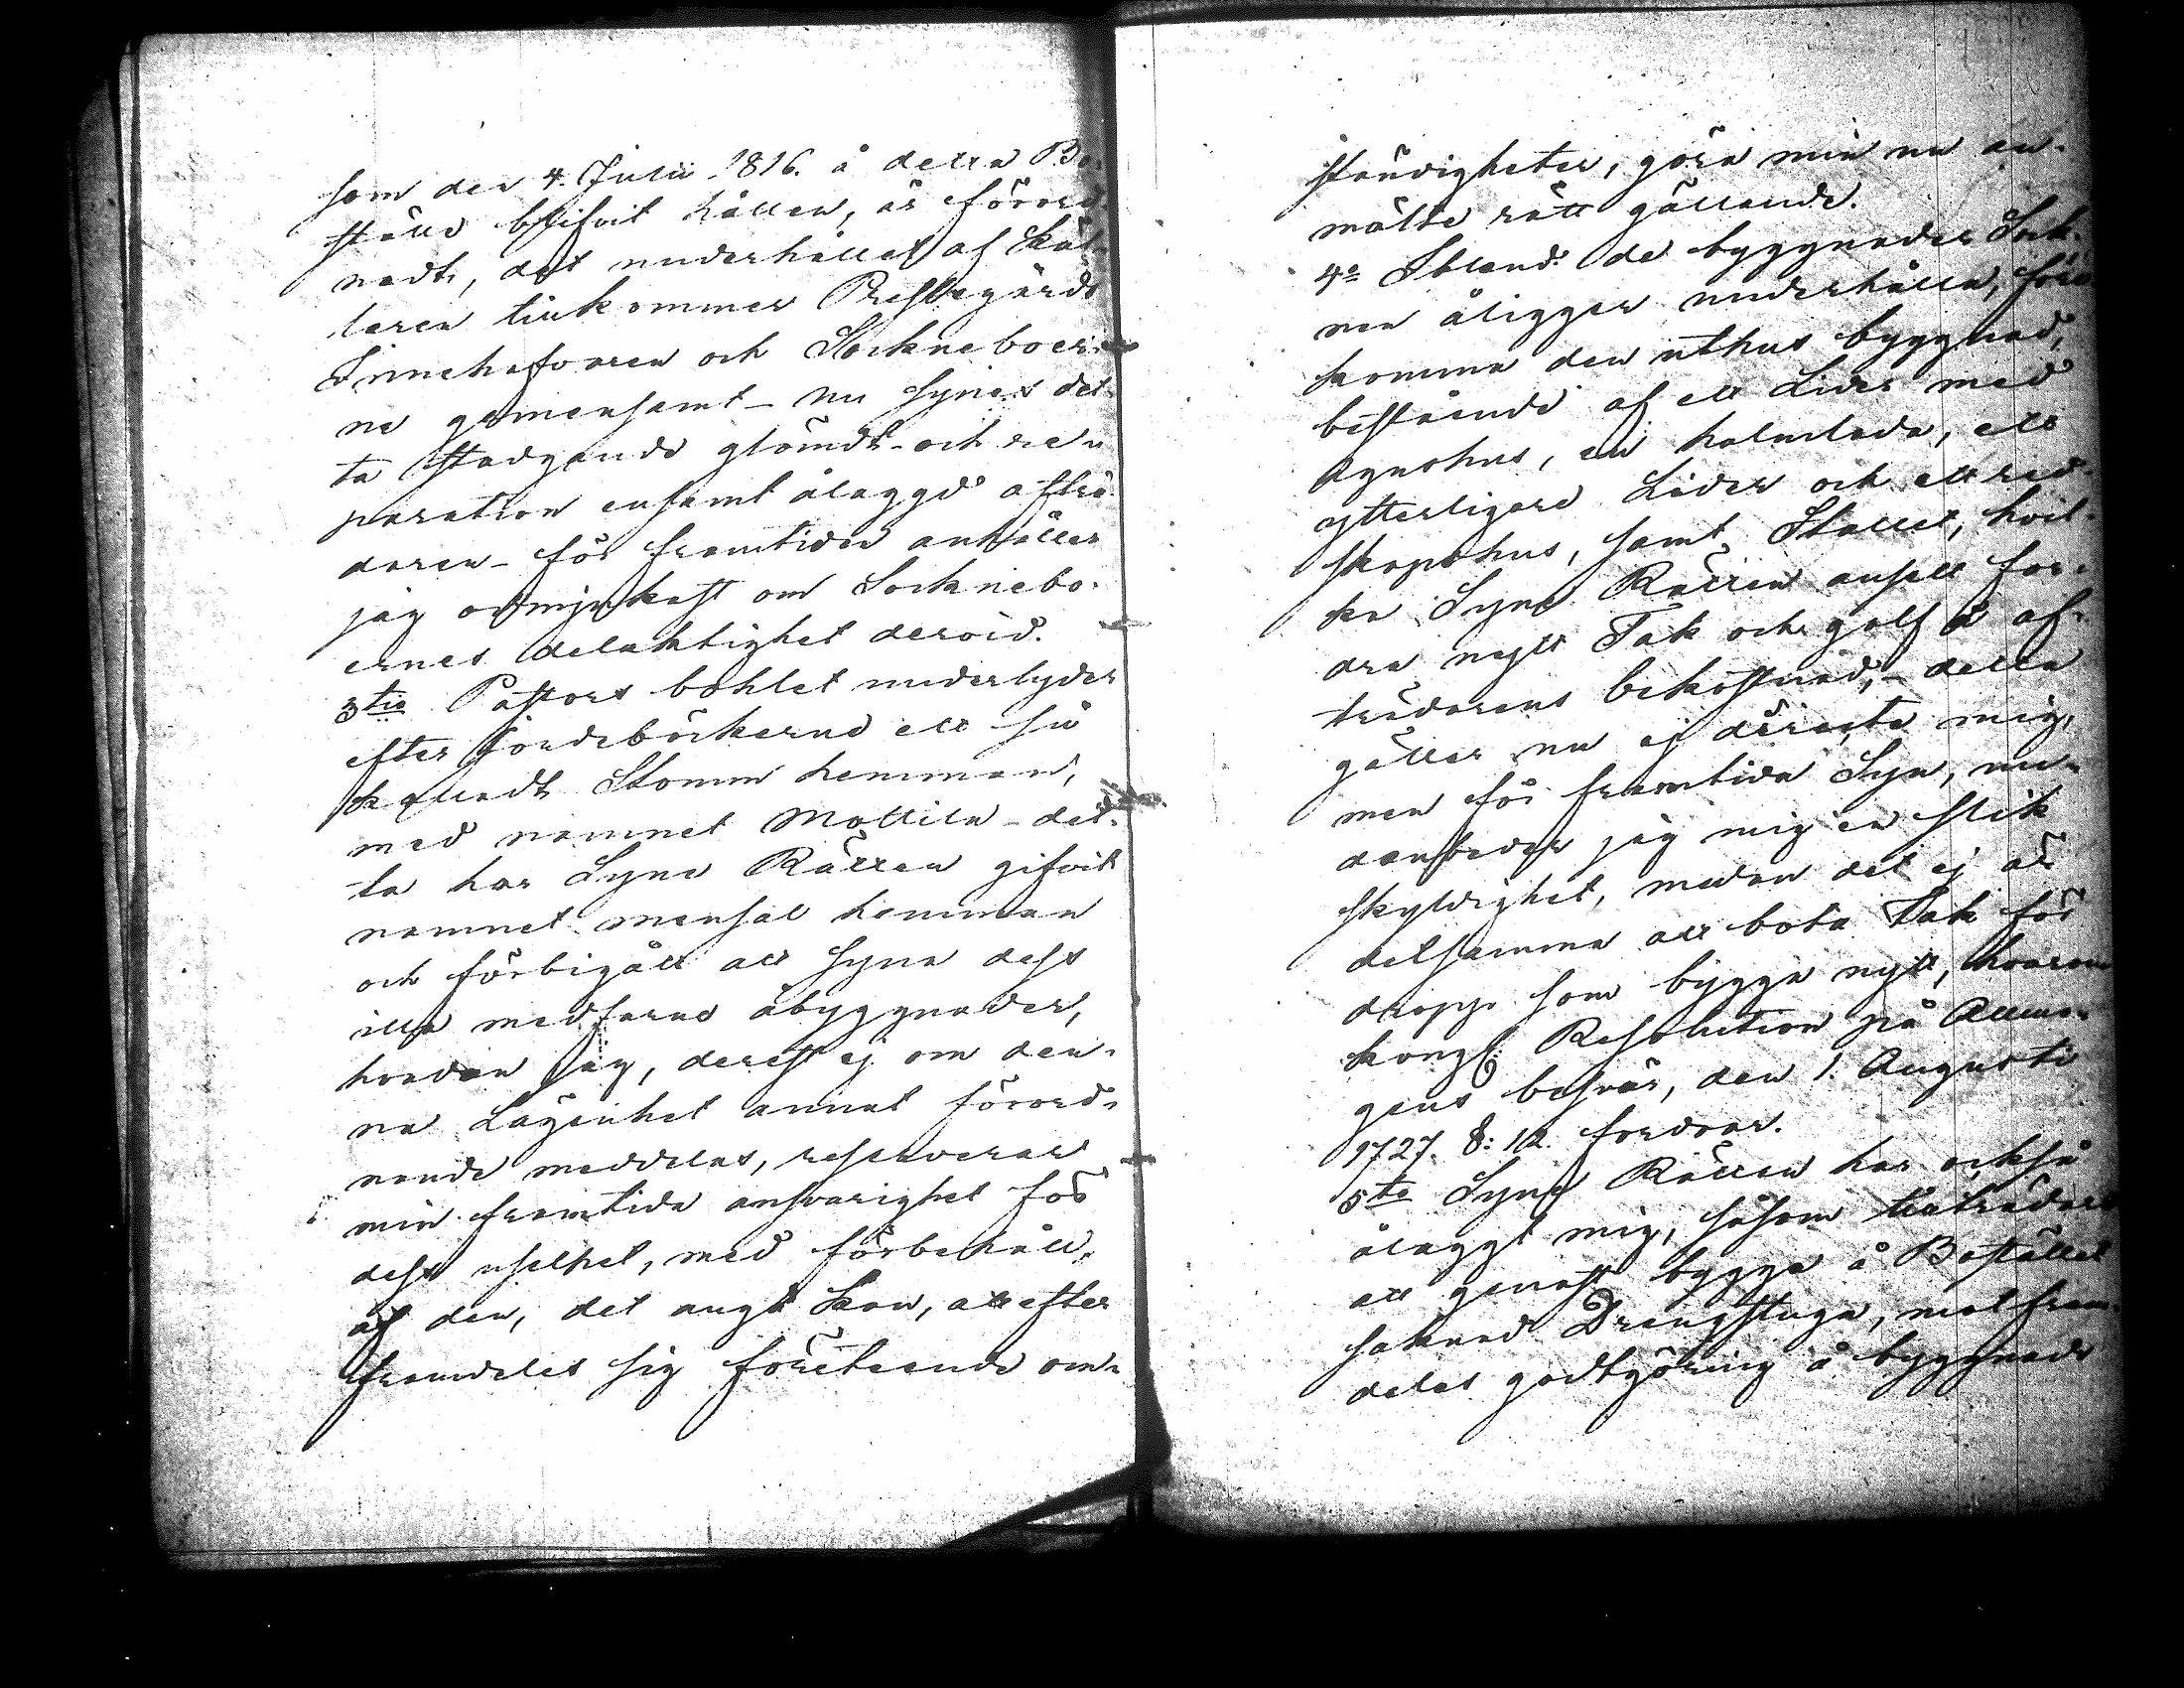 som den 4. Julii 1816. å detta Bo-
ställe blifvit hållen, är förord-
nadt, det underhållet af Käl-
laren tillkommer Prestegårds
Innehafvaren och Sockneboer-
ne gemensamt – nu synes det-
ta stadgande glömdt – och re-
paration ensamt ålaggd afträ-
daren – för framtiden anhåller
jag ödmjukast om Socknebo-
ernes delaktighet dervid.
3tio Pastors bohlet underlyder
efter Jordeböckerne ett så
kalladt Stomm hemman,
med namnet Mattila – det-
ta har Syne Rätten gifvit
namnet mensal hemman
och förbigått att syna dess
illa medfarne åbyggnader,
hvadan jag, derest ej om den-
na Lägenhet annat förord-
nande meddelas, reserverar
min framtida ansvarighet för
dess uselhet, med förbehåll,
af den, det angå kan, att efter
framdeles sig företeende om-
ständigheter, göra min nu an-
mälte rätt gällande.
4o Ibland de byggnader Sock-
nen åligger underhålla, före
komma den uthus byggnad,
bestående af ett Lider med
Agnehus, en halmlada, ett
ytterligare Lider och ett red-
skapshus, samt Stallet, hvil-
ka Syne Rätten ansett for-
dra nytt Tak och golf å af-
trädarens bekostnad, – detta
gäller nu ej directe mig,
men för framtida Syn, un-
danbeder jag mig en slik
skyldighet, medan det ej är
detsamma att bota Tak för
dropp som bygga nytt, hvarom
Kongl. Resolution på Allmo-
gens besvär, den 1. Augusti
1727. §: 12. fordrar.
5te Syne Rätten har också
ålaggt mig, såsom tillträdare
att genast bygga å Bostället
saknad Drengstuga, mot fram-
deles godtgöring å byggnads